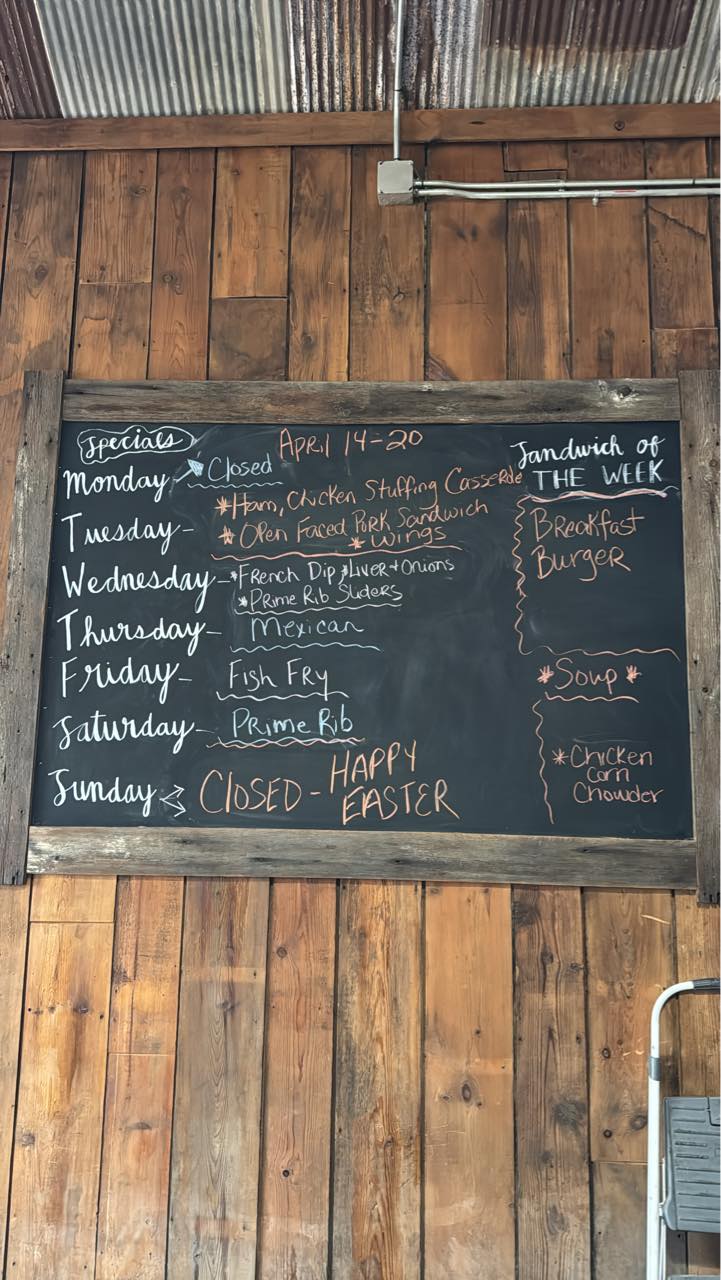 Specials
APRIL 14-20
Monday Closed
Tuesday- *Ham, Chicken Stuffing Casserole
*Open Faced Pork Sandwich
*Wings
Wednesday- *French Dip *Liver + Onions
*Prime Rib Sliders
Thursday- Mexican
Friday- Fish Fry
Saturday- Prime Rib
Sunday CLOSED - HAPPY
EASTER
Sandwich of
THE WEEK
Breakfast
Burger
*Soup*
*Chicken
Corn
Chowder